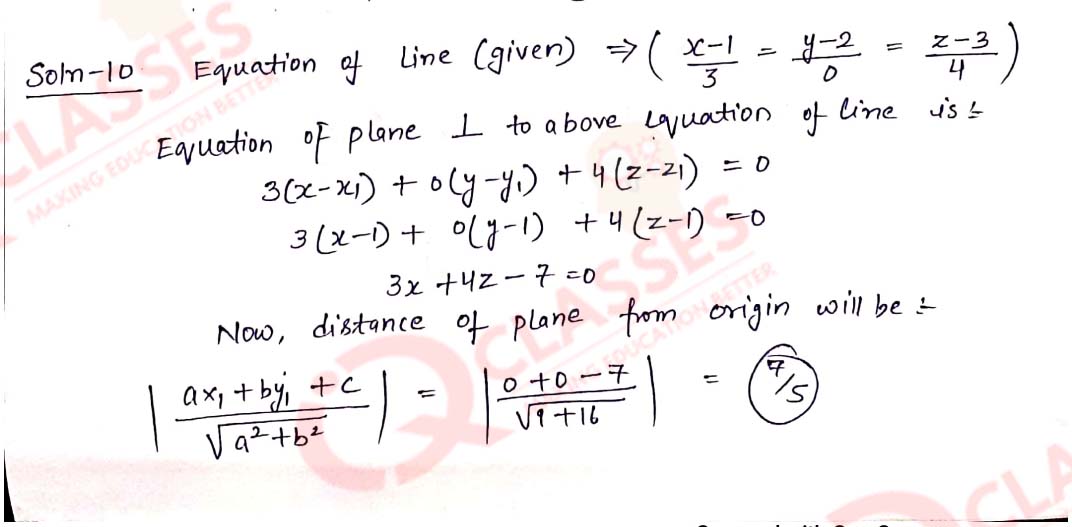 Soln-10 Equation of Line (given) ⇒ ( x-1/3 = y-2/0 = z-3/4 )
Equation of plane ⊥ to above equation of line is :-
3(x-x1) + 0(y-y1) + 4(z-z1) = 0
3(x-1) + 0(y-1) + 4(z-1) = 0
3x + 4z - 7 = 0
Now, distance of plane from origin will be :-
| ax1 + by1 + c / √a²+b² | = | 0 + 0 - 7 / √9+16 | = 7/5
CLASSES
MAKING EDUCATION BETTER
CLASSES
MAKING EDUCATION BETTER
CLA